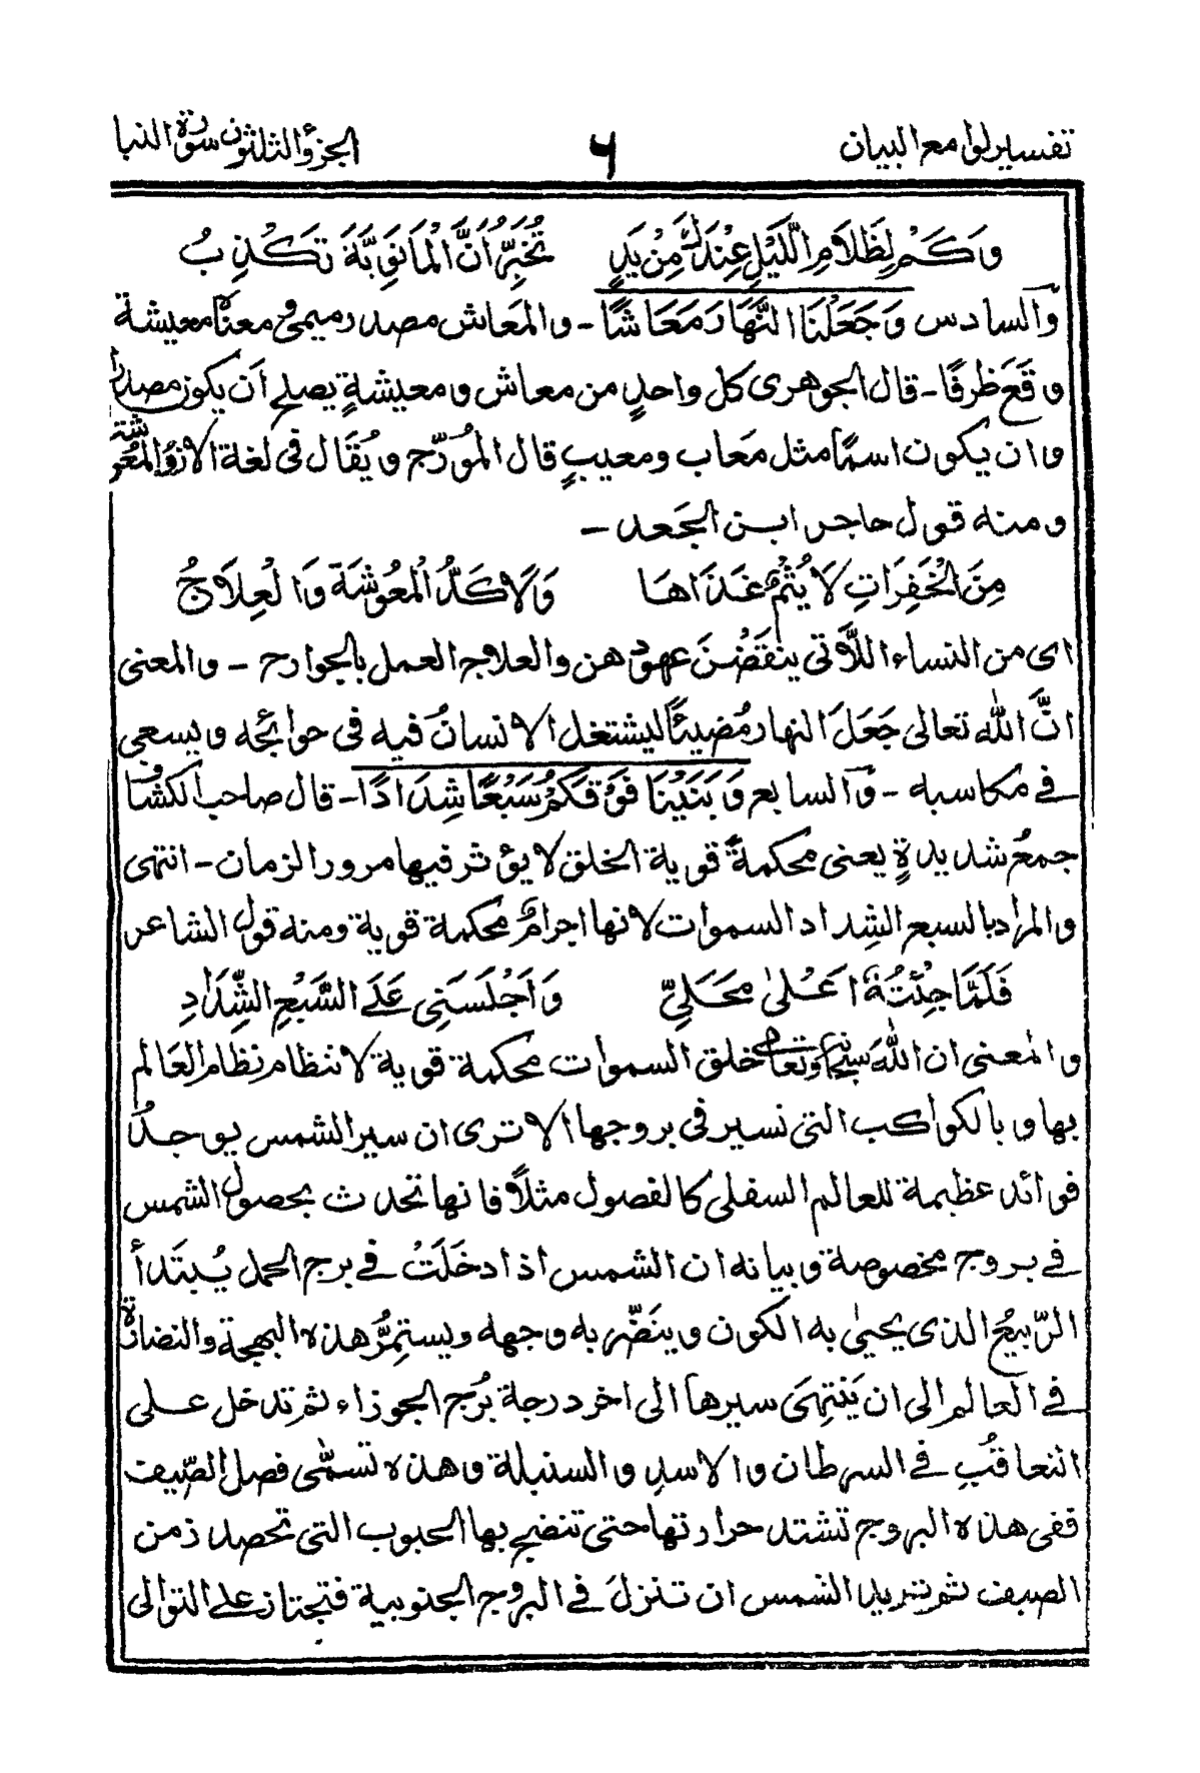 تفسير لوامع البيان ٦ الجزؤ الثلثون سورة النبا
وَكَمْ لِظَلَامِ الَّيْلِ عِنْدَكَ مِنْ يَدٍ تُخَبِّرُ اَنَّ الْمَانَوِيَّةَ تَكْذِبُ
وآلسادس وَجَعَلْنَا النَّهَارَ مَعَاشًا - والمَعاش مصدر ميمى ومعناه معيشة
وقَعَ ظرفًا - قال الجوهرى كل واحدٍ من معاش ومعيشةٍ يصلح اَن يكون مصدرا
وان يكون اسمًا مثل مَعاب ومعيبٍ قال المُورّج ويُقَال فى لغة الازد المعوشة
ومنه قول حاجر ابن الجَعد -
مِنَ الْخَفِرَاتِ لَا يُتْمٌ غَذَاهَا وَلَا كَدُّ الْمَعُوْشَةِ وَالْعِلَاجُ
اى من النساء اللّاتى ينقَضْنَ عهودهن والعلاج العمل بالجوارح - والمعنى
انَّ الله تعالى جَعَلَ النهار مُضيئًا ليشتغل الانسانُ فيه فى حوائجه ويسعى
فى مكاسبه - وآلسابع وَبَنَيْنَا فَوْقَكُمْ سَبْعًا شِدَادًا - قال صاحب الكشاف
جمعُ شديدةٍ يعنى محكمةً قوية الخلق لا يؤثر فيها مرور الزمان - انتهى
والمراد بالسبع الشِداد السموات لانها اجرامٌ محكمة قوية ومنه قول الشاعر
فَلَمَّا جِئْتُهُ اَعْلىٰ مَحَلِّىْ وَاَجْلَسَنِى عَلَى السَّبْعِ الشِّدَادِ
والمعنى ان اللهَ سبحانه وتعالى خلق السموات محكمة قوية لانتظام نظام العَالم
بها وبالكواكب التى تسير فى بروجها الا ترى ان سير الشمس يوجدُ
فوائد عظيمة للعالم السفلى كالفصول مثلًا فانها تحدث بحصول الشمس
فى بروج مخصوصة وبيانه ان الشمس اذا دخَلَتْ فى برج الحمل يُبتَدأ
الرّبيعُ الذى يحيىٰ به الكون وينَضّر به وجهه ويستمِرُّ هذه البهجة والنضارة
فى العالم الى ان يَنْتهِىَ سيرها الى اخر درجة بُرج الجوزاء ثم تدخل على
التعاقُبِ فى السرطان والاسدِ والسنبلة وهذه تسمّى فصل الصّيف
ففى هذه البروج تشتد حرارتها حتى تنضج بها الحبوب التى تحصد زمن
الصيف ثم تريد الشمس ان تنزلَ فى البروج الجنوبية فتجتاز على التوالى